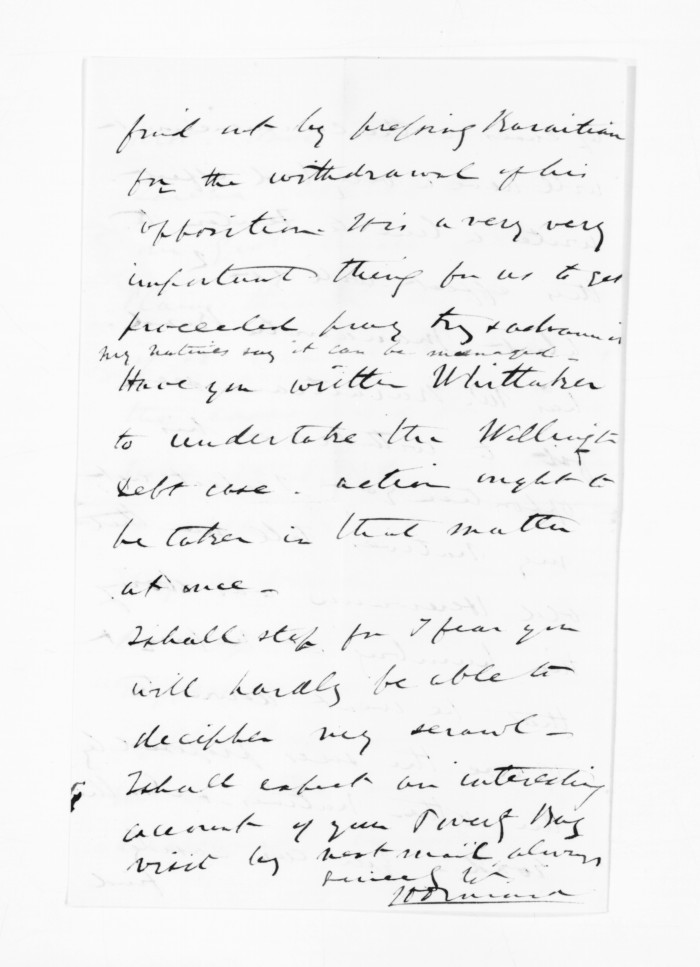 find out by pressing Karaitiana
for the withdrawal of his
opposition. It is a very very
important thing for us to get
proceeded pray try & advance it
my natives say it can be managed –
Have you written Whittaker
to undertake the Wellington
debt case. action ought to
be taken in that matter
at once –
I shall stop for I fear you
will hardly be able to
decipher my scrawl –
I shall expect an interesting
account of your Poverty Bay
visit by next mail, always
sincerely